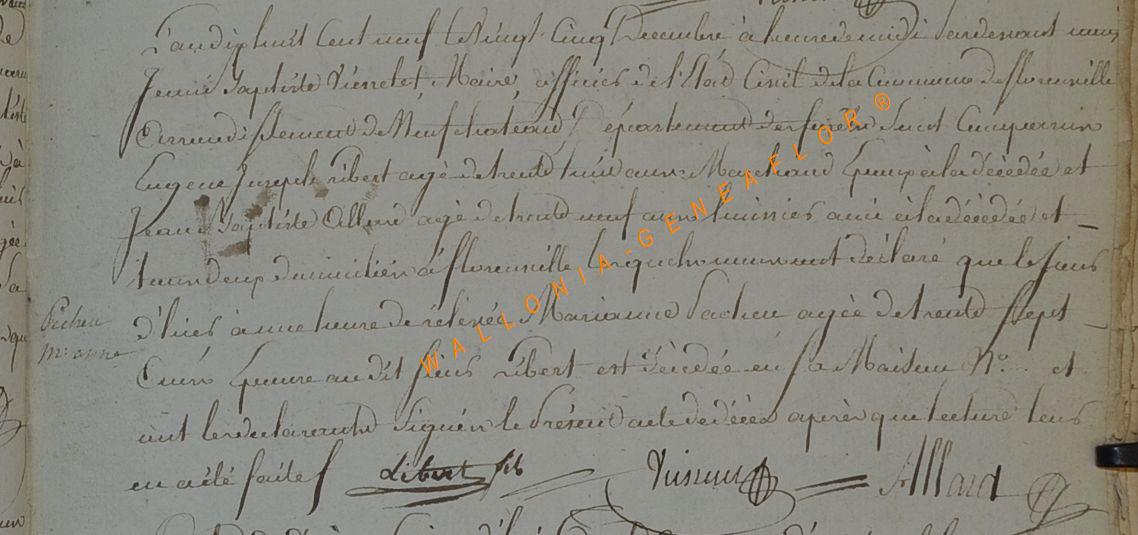 L'an dix huit Cent neuf le Vingt Cinq Decembre à heure de midi Pardevant nous
Jean Baptiste Maire, officier de l'Etat Civil de la Commune de florenville
Arrondissement de Neufchateau Département des forets Sont Comparus
Eugene Joseph Libert agé de trente huit ans Marchand Epoux à la décédée et
Jean Baptiste Allard agé de trente neuf ans huissier ami à la décédée et
tous deux domiciliés à florenville, Lesquels nous ont déclaré que le Jour
d'hier à une heure de relevée Marianne Pacheu agée de trente Sept
Pacheu
Mie anne
ans Epouse au dit Libert est décédée en Sa Maison No et
ont les declarants Signés le Présent acte de décés après que lecture leurs
en a été faite
Libert
Allard
WALLONIA-GENEAFLOR®